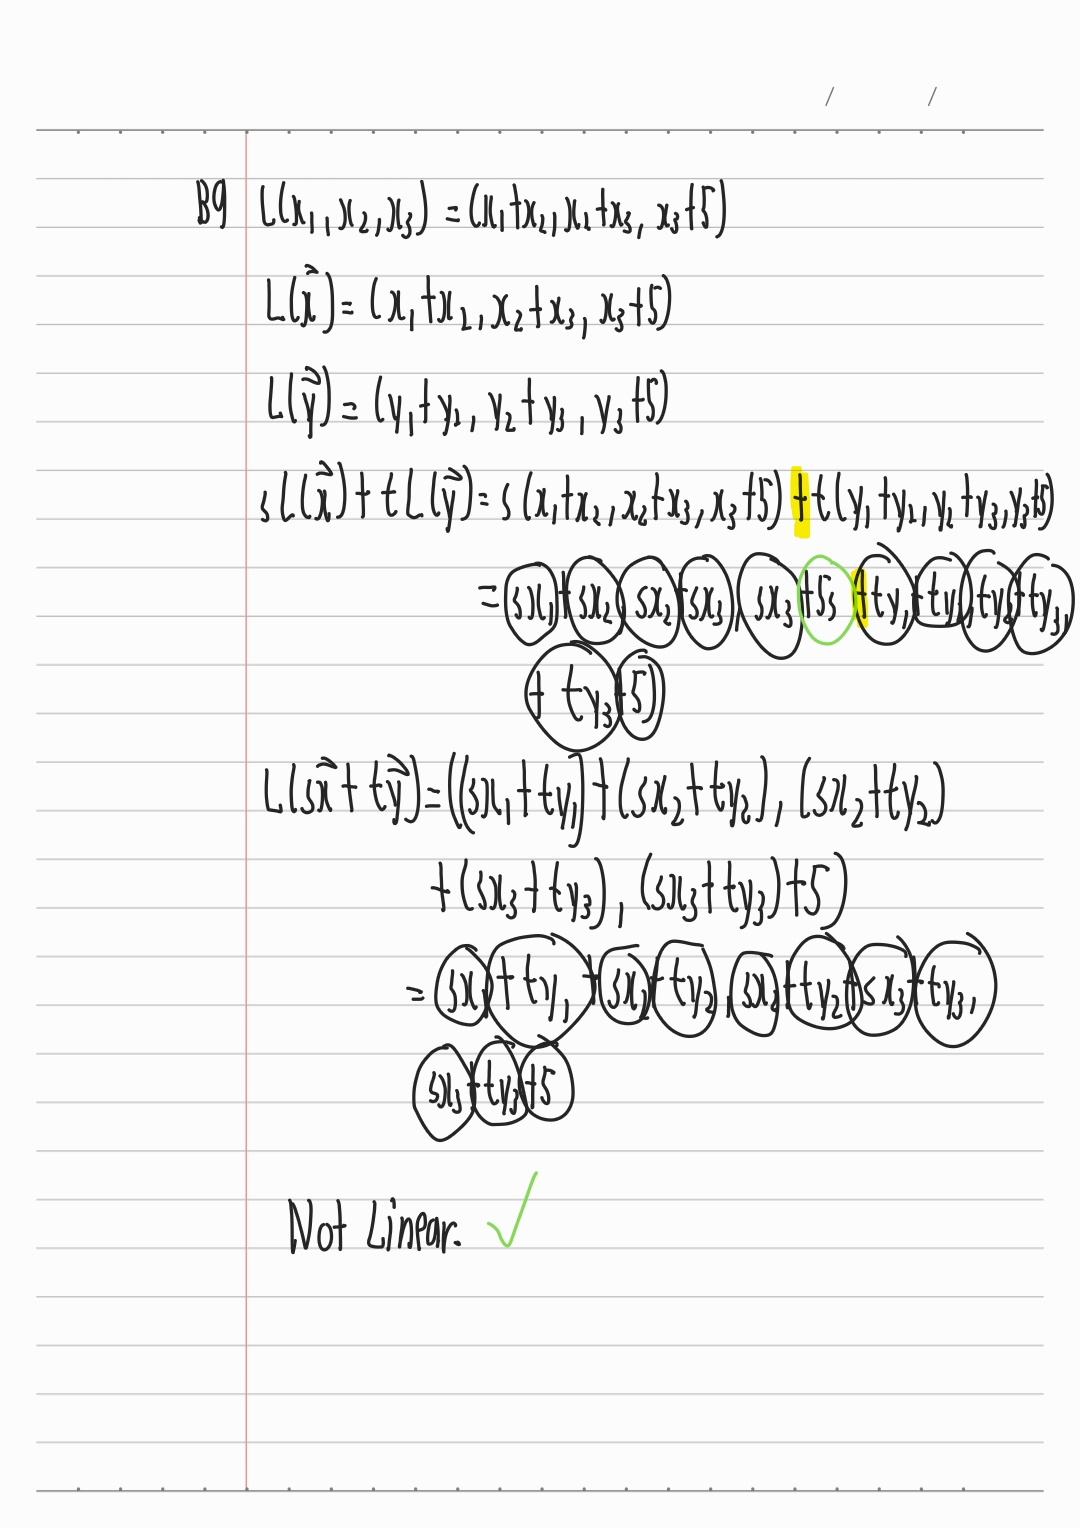 B9 L(x₁, x₂, x₃) = (x₁+x₂, x₂+x₃, x₃+5)
L(x⃗) = (x₁+x₂, x₂+x₃, x₃+5)
L(y⃗) = (y₁+y₂, y₂+y₃, y₃+5)
sL(x⃗)+tL(y⃗) = s(x₁+x₂, x₂+x₃, x₃+5)+t(y₁+y₂, y₂+y₃, y₃+5)
= sx₁+sx₂, sx₂+sx₃, sx₃+5s+ty₁+ty₂, ty₂+ty₃,
+ ty₃+5)
L(sx⃗+ty⃗) = ((sx₁+ty₁)+(sx₂+ty₂), (sx₂+ty₂)
+(sx₃+ty₃), (sx₃+ty₃)+5)
= sx₁+ty₁+sx₂+ty₂, sx₂+ty₂+sx₃+ty₃,
sx₃+ty₃+5
Not Linear. ✓